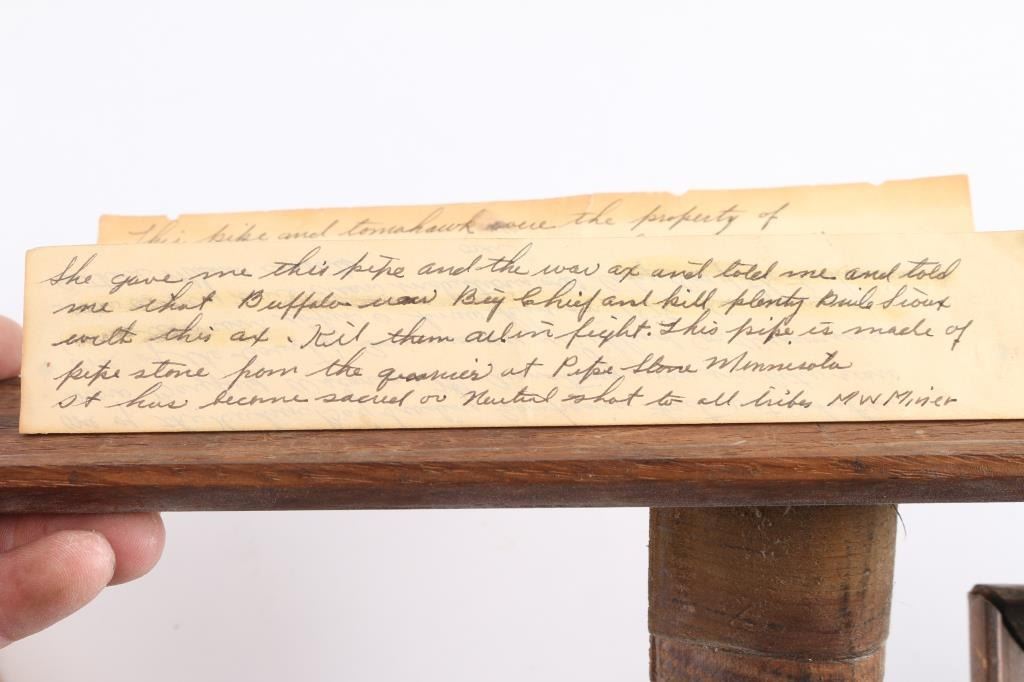 This pipe and tomahawk were the property of
She gave me this pipe and the war ax and told me and told
me that Buffalo was Big Chief and kill plenty Brule Sioux
with this ax. Kil them all in fight. This pipe is made of
pipe stone from the quarrier at Pipe Stone Minnisota
It has become sacred or Neutral shot to all tribes MW Miner